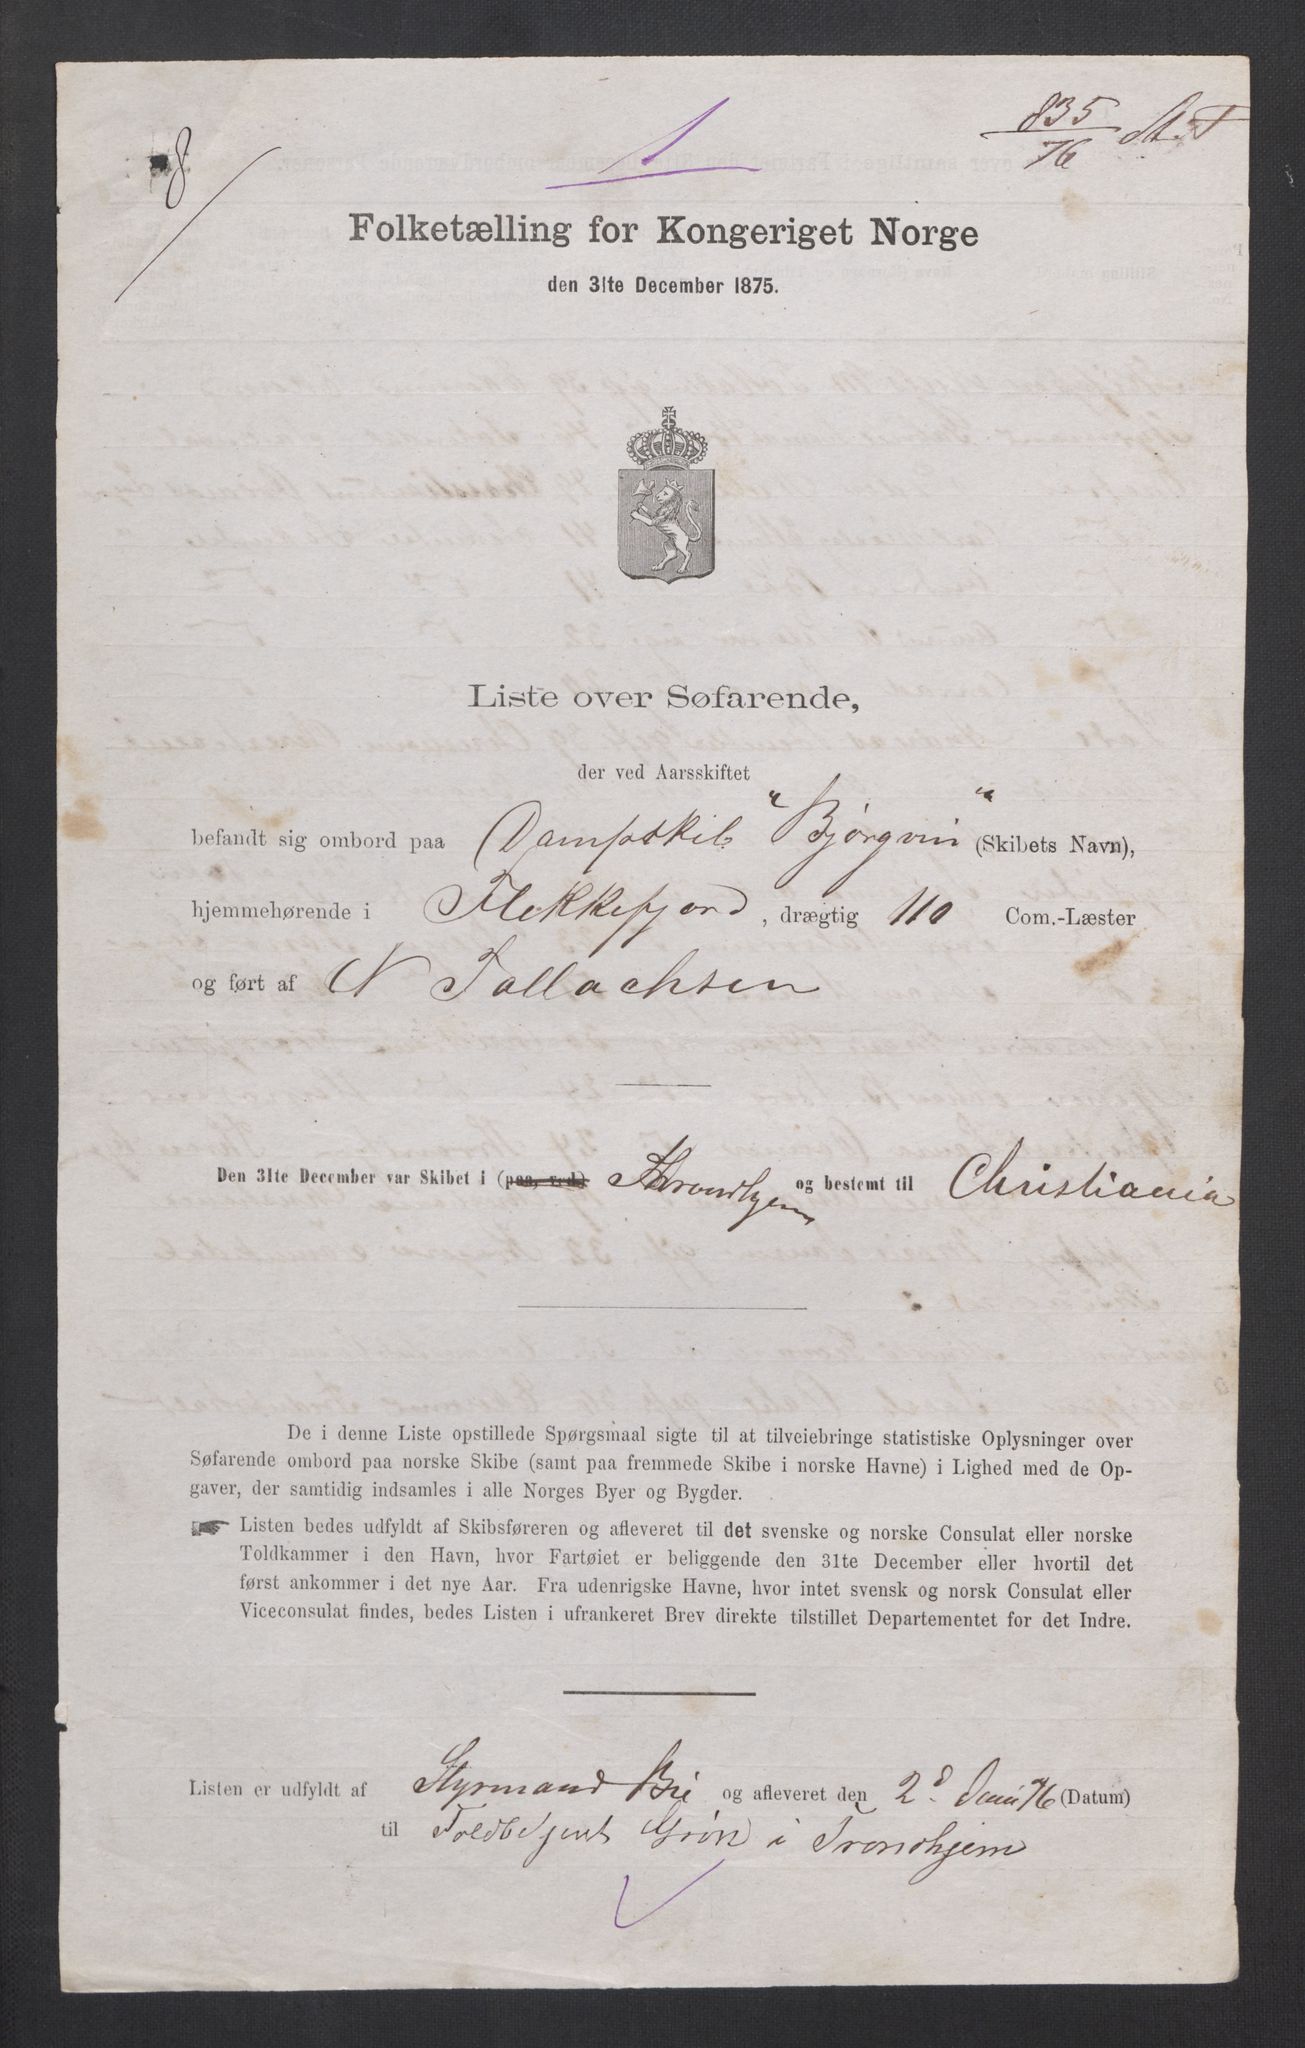 8
1
835
76
Folketælling for Kongeriget Norge
den 31te December 1875.
Liste over Søfarende,
der ved Aarsskiftet
befandt sig ombord paa Dampskib "Bjørgvin" (Skibets Navn),
hjemmehørende i Flekkefjord, drægtig 110 Com.-Læster
og ført af N Tallachsen
Den 31te December var Skibet i (paa, ved) Throndhjem og bestemt til Christiania
De i denne Liste opstillede Spørgsmaal sigte til at tilveiebringe statistiske Oplysninger over
Søfarende ombord paa norske Skibe (samt paa fremmede Skibe i norske Havne) i Lighed med de Op-
gaver, der samtidig indsamles i alle Norges Byer og Bygder.
☛ Listen bedes udfyldt af Skibsføreren og afleveret til det svenske og norske Consulat eller norske
Toldkammer i den Havn, hvor Fartøiet er beliggende den 31te December eller hvortil det
først ankommer i det nye Aar. Fra udenrigske Havne, hvor intet svensk og norsk Consulat eller
Viceconsulat findes, bedes Listen i ufrankeret Brev direkte tilstillet Departementet for det Indre.
Listen er udfyldt af Styrmand Bie og afleveret den 2d 76 (Datum)
til Toldbetjent Grøn i Trondhjem